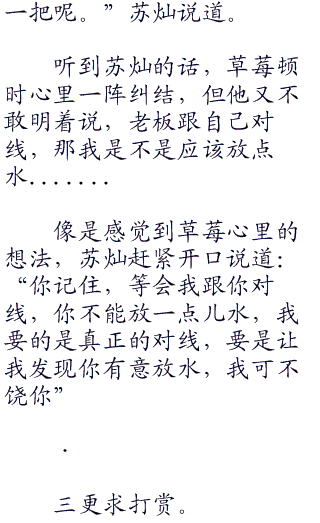 一把呢。”苏灿说道。
听到苏灿的话，草莓顿
时心里一阵纠结，但他又不
敢明着说，老板跟自己对
线，那我是不是应该放点
水.......
像是感觉到草莓心里的
想法，苏灿赶紧开口说道：
“你记住，等会我跟你对
线，你不能放一点儿水，我
要的是真正的对线，要是让
我发现你有意放水，我可不
饶你”
.
三更求打赏。